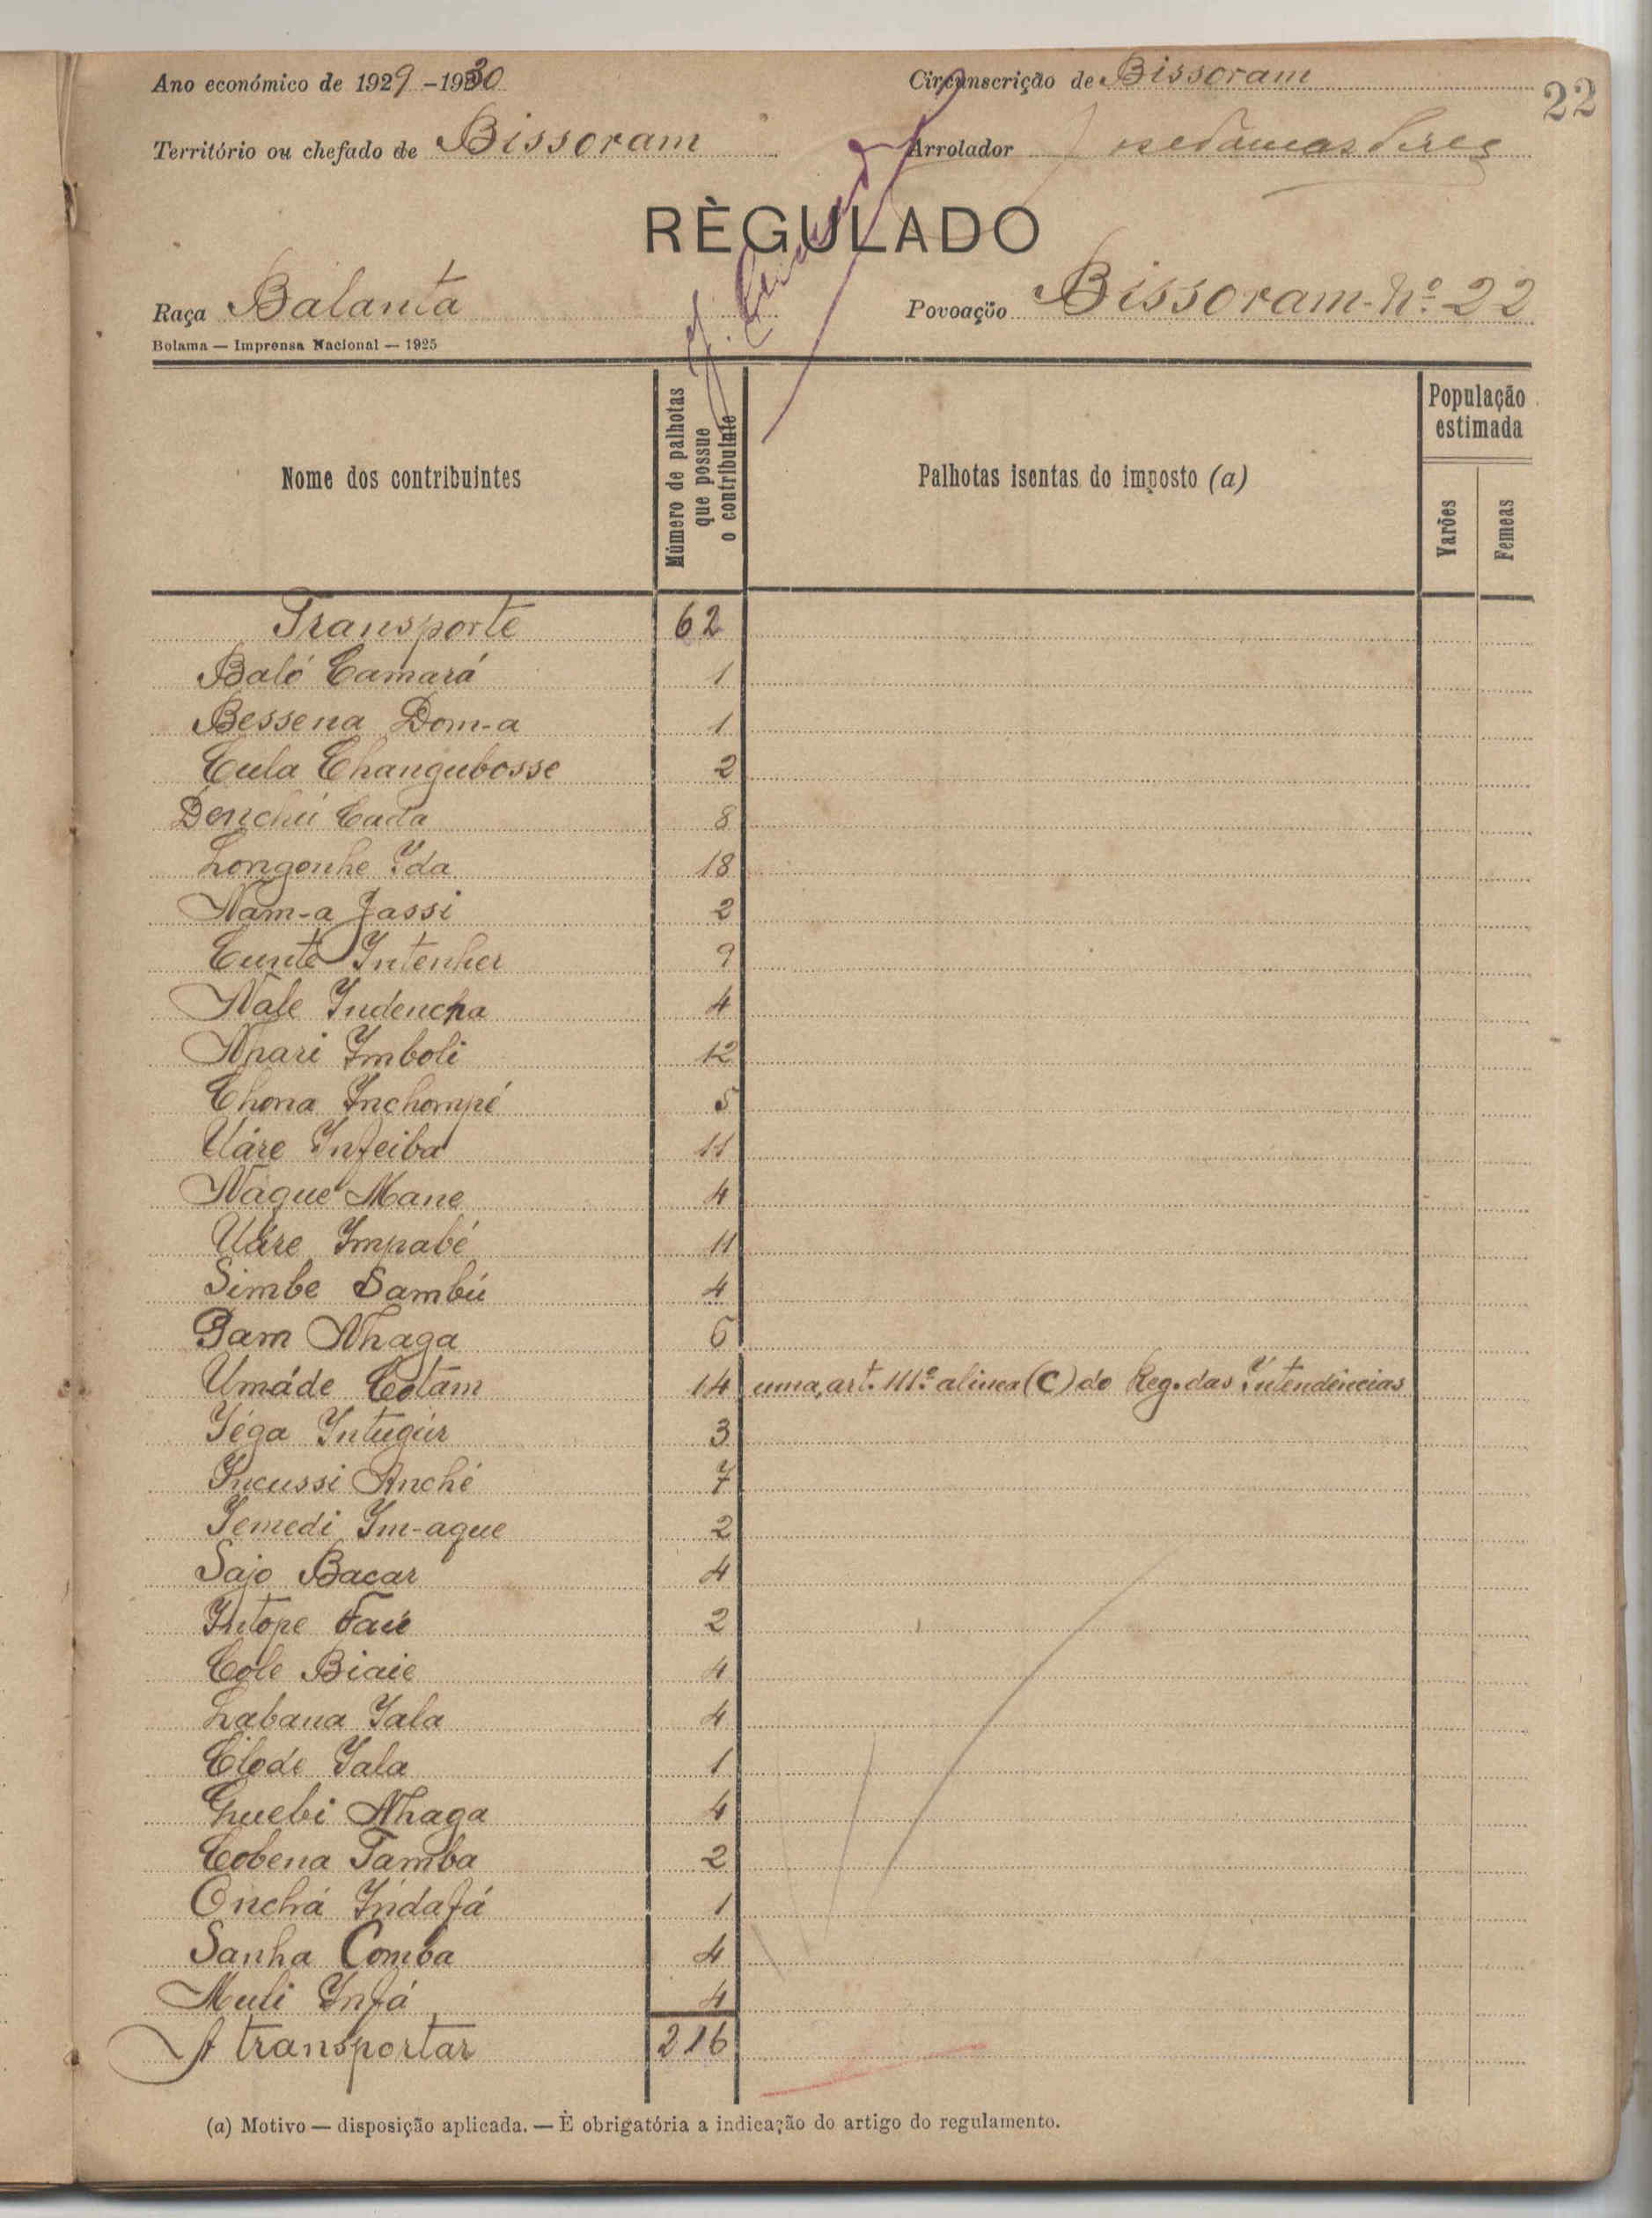 Ano económico de 1929-1930 Circunscrição de Bissoram
22
Território ou chefado de Bissoram Arrolador
RÈGULADO
Raça Balanta Povoação Bissoram-Nº 22
Bolama — Imprensa Nacional — 1925
Nome dos contribuintes
Múmero de palhotas que possue o contribuinte
Palhotas isentas do imposto (a)
População estimada
Varões
Femeas
Transporte 62
Baló Camará 1
Bessena Dom-a 1
Cula Changubosse 2
Denchú Cada 8
Longonhe Yda 18
Nam-a Jassi 2
Cunté Intenher 9
Nale Indencha 4
Nhari Imboli 12
Chona Inchompé 5
Uáre Infeiba 11
Naque Mane 4
Uáre Impabé 11
Simbe Sambú 4
Bam Nhaga 6
Umáde Cotam 14 uma, art. 111º alinea (C) do Reg. das Intendências
Yéga Intugúr 3
Incussi Anché 7
Yemedi Im-aque 2
Sajo Bacar 4
Intope Faié 2
Cole Biaie 4
Labana Yala 4
Clode Yala 1
Guebi Nhaga 4
Cobena Tamba 2
Onchá Indafá 1
Sanha Comba 4
Muli Infá 4
A transportar 216
(a) Motivo — disposição aplicada. — È obrigatória a indicação do artigo do regulamento.